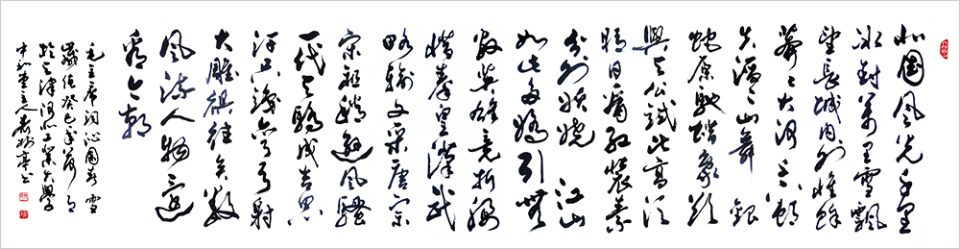 北國風光千里
冰封萬里雪飄
望長城内外惟餘
莽々大河上下頓
失滔々山舞銀
蛇原馳蜡象欲
與天公試比高須
晴日看紅裝素
分外妖嬈 江山
如此多嬌引無
數英雄競折腰
惜秦皇漢武
略輸文采唐宗
宋祖稍遜風騷
一代天驕成吉思
汗只識彎弓射
大雕俱往矣數
風流人物還
看今朝
毛主席詞沁園春 雪
歲值癸巳年荷月
於天津河北工業大學
中和堂主人